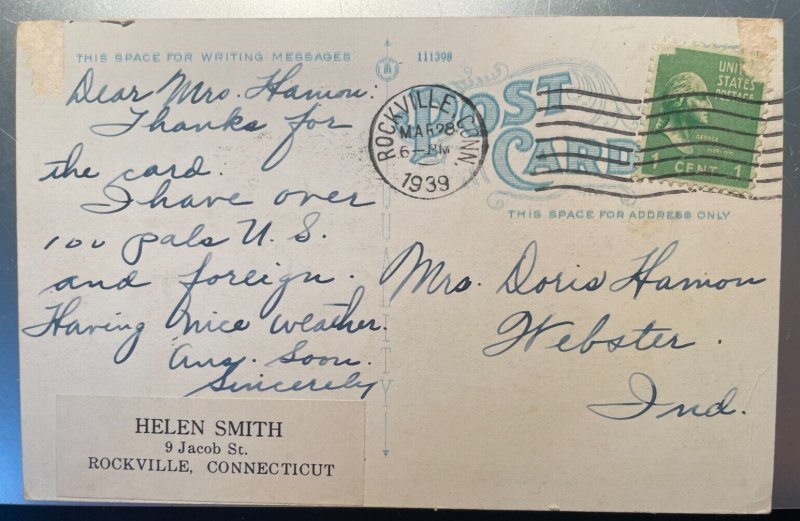 THIS SPACE FOR WRITING MESSAGES
Dear Mrs. Hamon:
Thanks for
the card.
I have over
100 pals U. S.
and foreign.
Having nice weather.
Ans. Soon.
Sincerely
HELEN SMITH
9 Jacob St.
ROCKVILLE, CONNECTICUT
111398
QUALITY
POST
CARD
ROCKVILLE, CONN.
MAR 28
6-PM
1939
UNITED
STATES
POSTAGE
GEORGE
1 CENT 1
THIS SPACE FOR ADDRESS ONLY
Mrs. Doris Hamon
Webster.
Ind.